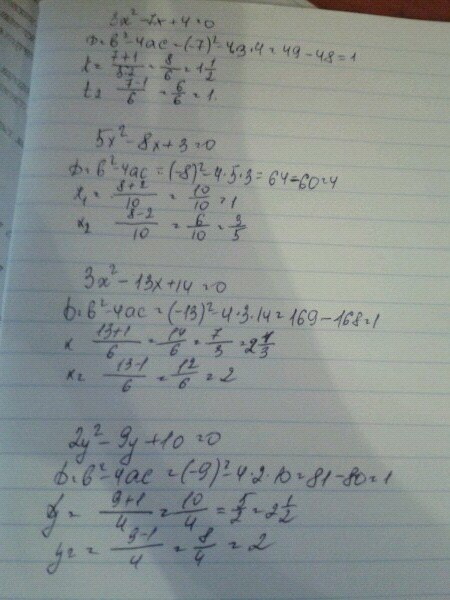 3x²-7x+4=0
D=b²-4ac=(-7)²-4·3·4=49-48=1
x= 7+1/6 = 8/6 = 1 1/2
x2 7-1/6 = 6/6 = 1
5x²-8x+3=0
D=b²-4ac=(-8)²-4·5·3=64-60=4
x1= 8+2/10 = 10/10 = 1
x2 8-2/10 = 6/10 = 3/5
3x²-13x+14=0
D=b²-4ac=(-13)²-4·3·14=169-168=1
x 13+1/6 = 14/6 = 7/3 = 2 1/3
x2= 13-1/6 = 12/6 = 2
2y²-9y+10=0
D=b²-4ac=(-9)²-4·2·10=81-80=1
y= 9+1/4 = 10/4 = 5/2 = 2 1/2
y2= 9-1/4 = 8/4 = 2